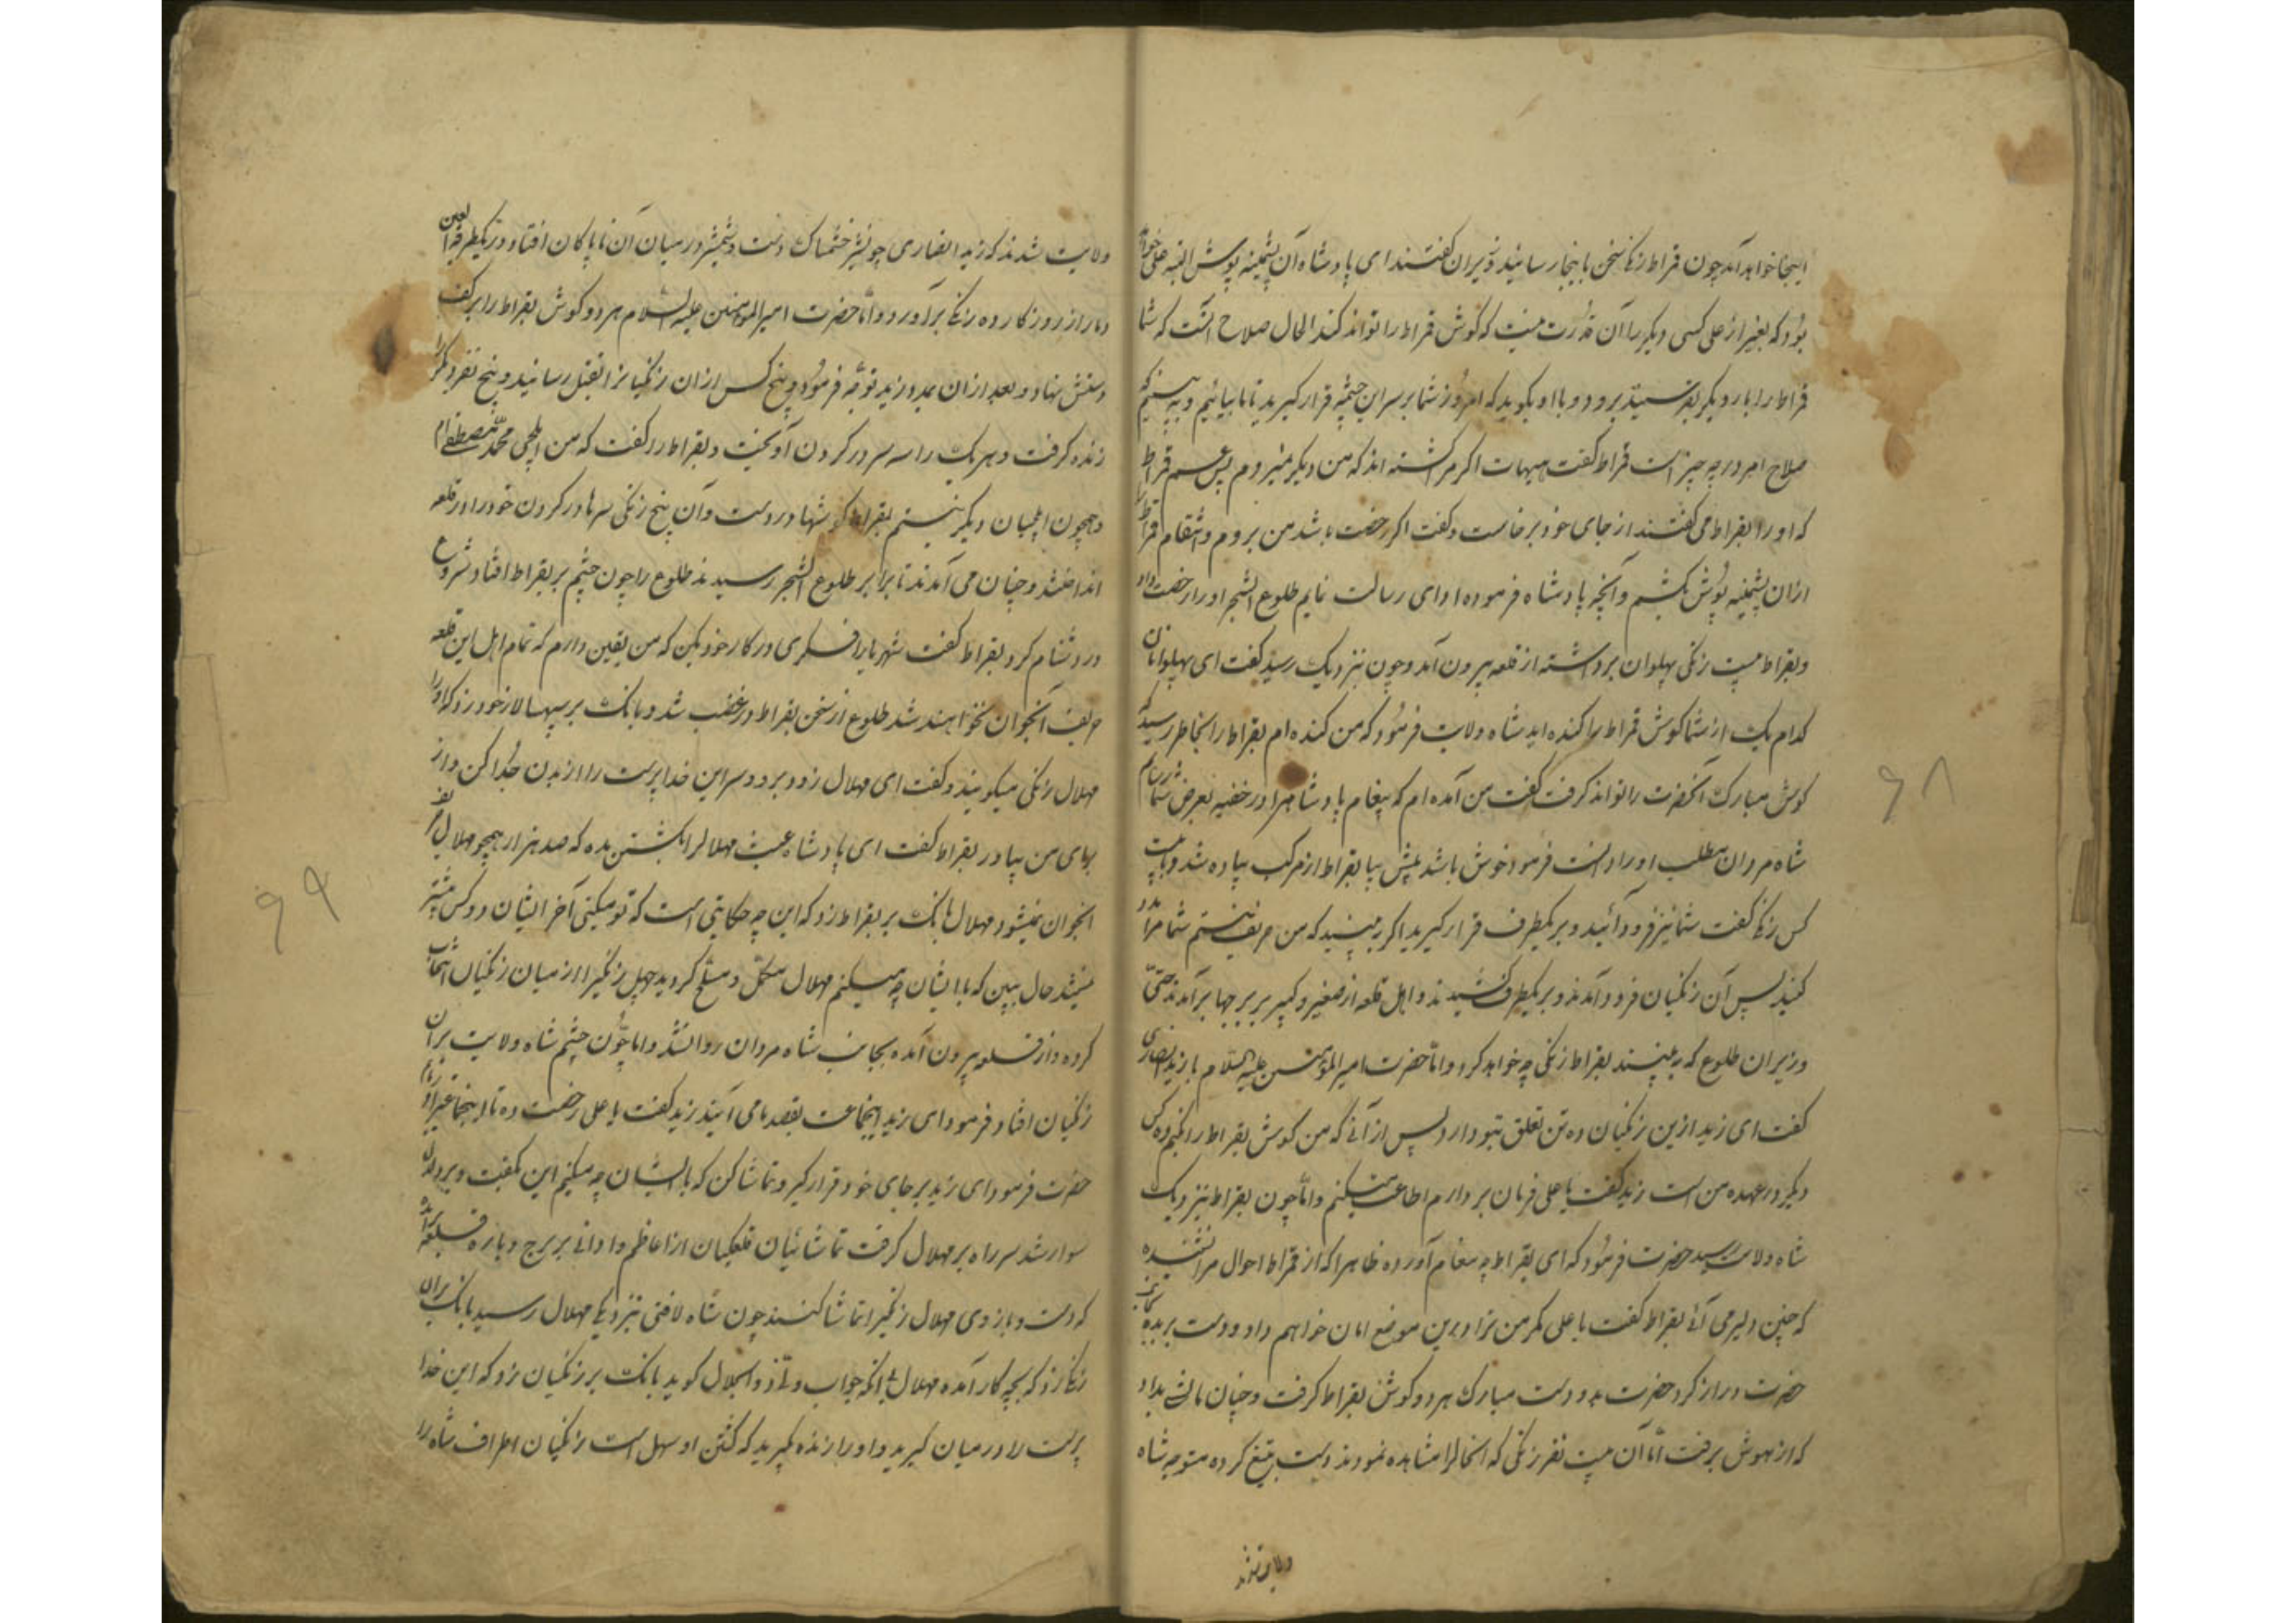 اینجا خواهد آمد چون قراط زنگی سخن باینجا رسانید وزیران گفتند ای پادشاه آن پشمینه پوش البته علی خواهد
بود که بغیر از علی کسی دیگر را آن قدرت نیست که گوش قراط را تواند کند الحال صلاح آنست که شما
قراط را بار دیگر بفرستید برود و با او بگوید که امروز شما بر سر این چشمه قرار گیرید تا ما بیائیم و به بینیم که
صلاح امر در چه چیز است قراط گفت هیهات اگر مرا کشته اند که من دیگر نمیروم پس عم قراط
که او را بقراط می گفتند از جای خود برخاست و گفت اگر رخصت باشد من بروم و انتقام قراط را
ازان پشمینه پوش بکشم و آنچه پادشاه فرموده ادای رسالت نمایم طلوع الشجر او را رخصت داد
و بقراط بیست زنگی پهلوان برداشته از قلعه بیرون آمد و چون نزدیک رسید گفت ای پهلوانان
کدام یک از شما گوش قراط را کنده اید شاه ولایت فرمود که من کنده ام بقراط را بخاطر رسید که
گوش مبارک آنحضرت را تواند گرفت گفت من آمده ام که پیغام پادشاه را در خفیه بعرض شما رسانم
شاه مردان مطلب او را دانست فرمود خوش باشد پیش بیا بقراط از مرکب پیاده شد و با بیست
کس زنگی گفت شما نیز فرود آئید و بر یکطرف قرار گیرید اگر ببینید که من حریف نیستم شما مرا مدد
کنید پس آن زنگیان فرود آمدند و بر یکطرف کشیدند و اهل قلعه از صغیر و کبیر بر برجها برآمدند حتی
وزیران طلوع که به بینند بقراط زنگی چه خواهد کرد و اما حضرت امیرالمؤمنین علیه السلام با زید انصاری
گفت ای زید ازین زنگیان ده تن تعلق بتو دارد پس از آنی که من گوش بقراط را بکنم ده کس
دیگر در عهده من است زید گفت یا علی فرمان بردارم اطاعت میکنم و اما چون بقراط بنزدیک
شاه ولایت رسید حضرت فرمود که ای بقراط چه پیغام آورده ظاهرا که از قراط احوال مرا نشنیده
که چنین دلیر می آئی بقراط گفت یا علی مگر من ترا درین موضع امان خواهم داد و دست بریده بجانب
حضرت دراز کرد حضرت بدو دست مبارک هر دو گوش بقراط گرفت و چنان مالشی بداد
که از هوش برفت اما آن بیست نفر زنگی که آنحال را مشاهده نمودند دست بتیغ کرده متوجه شاه
ولایت شدند
۶۸
ولایت شدند که زید انصاری چون شیر خشمناک دست و شمشیر در میان آن ناپاکان افتاد و در یکطرفة العین
دمار از روزگار ده زنگی برآورد و اما حضرت امیرالمؤمنین علیه السلام هر دو گوش بقراط را بر کف
دستش نهاد و بعد ازان بمدد زید توجه فرمود و پنج کس ازان زنگیان را بقتل رسانید و پنج نفر دیگر را
زنده گرفت و هر یک را سه سر در گردن آویخت و بقراط را گفت که من ایلچی محمد مصطفی ام
و همچون ایلچیان دیگر نیستم بقراط گوشها در دست و آن پنج زنگی سرها در گردن خود را در قلعه
انداختند و چنان می آمدند تا برابر طلوع الشجر رسیدند طلوع را چون چشم بر بقراط افتاد شروع
در دشنام کرد بقراط گفت شهریارا فکری در کار خود بکن که من یقین دارم که تمام اهل این قلعه
حریف آنجوان نخواهند شد طلوع از سخن بقراط در غضب شد و بانگ بر سپهسالار خود زد که او را
مهلال زنگی میگویند و گفت ای مهلال زود برو و سر این خداپرست را از بدن جدا کن و از
برای من بیاور بقراط گفت ای پادشاه عبث مهلال را بکشتن مده که صد هزار همچو مهلال حریف
آنجوان نمیشود مهلال بانگ بر بقراط زد که این چه حکایتی است که تو میکنی آخر ایشان دو کس بیشتر
نیستند حال ببین که با ایشان چه میکنم مهلال مکمل و مسلح گردید چهل زنگی را از میان زنگیان انتخاب
کرده و از قلعه بیرون آمده بجانب شاه مردان روان شد و اما چون چشم شاه ولایت بر آن
زنگیان افتاد فرمود ای زید اینجماعت بقصد ما می آیند زید گفت یا علی رخصت ده تا اینجماعت را
حضرت فرمود ای زید بر جای خود قرار گیر و تماشا کن که با ایشان چه میکنم این بگفت و بر دلدل
سوار شد سر راه بر مهلال گرفت تماشائیان قلعگیان از اعاظم و ادانی بر برج و باره قلعه برآمده
که دست و بازوی مهلال زنگی را تماشا کنند چون شاه لافتی بنزدیک مهلال رسید بانگ بران
زنگی زد که بچه کار آمده مهلال بی آنکه جواب ولی ذو الجلال گوید بانگ بر زنگیان زد که این خدا
پرست را در میان گیرید و او را زنده گیرید که کشتن او سهل است زنگیان اطراف شاه را
۶۹